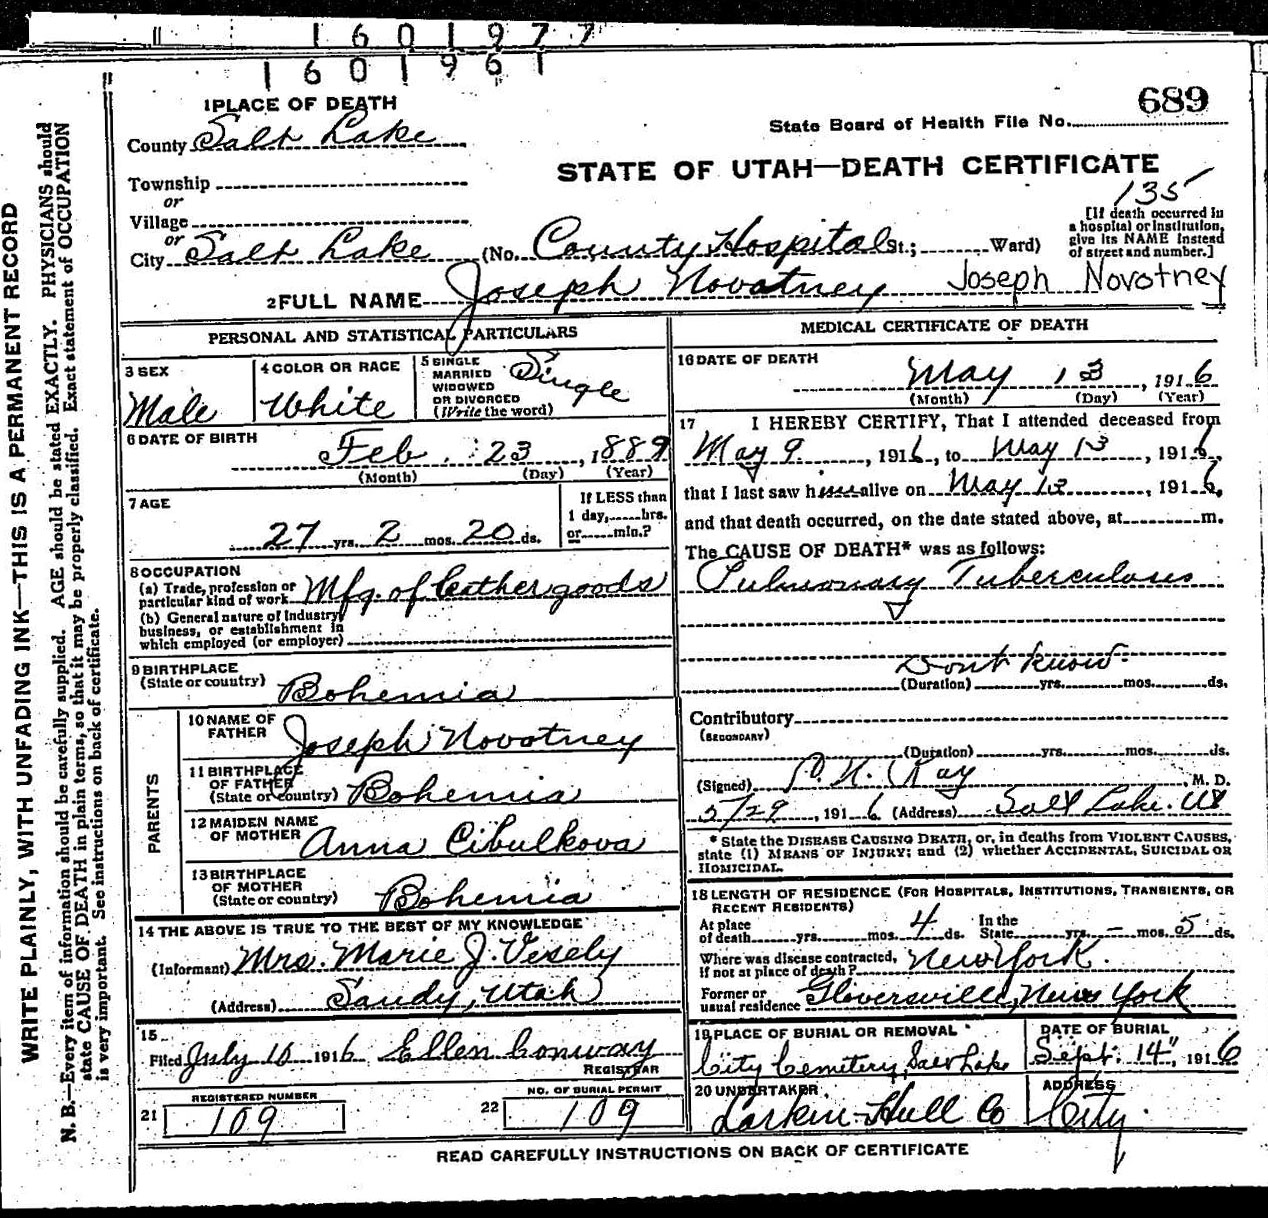 1601977
1601961
1 PLACE OF DEATH
689
County Salt Lake
State Board of Health File No.
STATE OF UTAH—DEATH CERTIFICATE
Township
or
135
Village
or
City Salt Lake (No. County Hospital St.; Ward)
[If death occurred in
a hospital or institution,
give its NAME instead
of street and number.]
2 FULL NAME Joseph Novotney Joseph Novotney
PERSONAL AND STATISTICAL PARTICULARS
3 SEX
Male
4 COLOR OR RACE
White
5 SINGLE
MARRIED
WIDOWED
OR DIVORCED
(Write the word)
Single
6 DATE OF BIRTH
Feb. 23, 1889
(Month) (Day) (Year)
7 AGE
27 yrs. 2 mos. 20 ds.
If LESS than
1 day, hrs.
or min.?
8 OCCUPATION
(a) Trade, profession or
particular kind of work Mfg. of leather goods
(b) General nature of Industry,
business, or establishment in
which employed (or employer)
9 BIRTHPLACE
(State or country) Bohemia
PARENTS
10 NAME OF
FATHER Joseph Novotney
11 BIRTHPLACE
OF FATHER
(State or country) Bohemia
12 MAIDEN NAME
OF MOTHER Anna Cibulkova
13 BIRTHPLACE
OF MOTHER
(State or country) Bohemia
14 THE ABOVE IS TRUE TO THE BEST OF MY KNOWLEDGE
(Informant) Mrs. Marie J. Vesely
(Address) Sandy, Utah
15
Filed July 10 1916 Ellen Conway
REGISTRAR
21 REGISTERED NUMBER
109
22 NO. OF BURIAL PERMIT
109
MEDICAL CERTIFICATE OF DEATH
16 DATE OF DEATH
May 13, 1916
(Month) (Day) (Year)
17 I HEREBY CERTIFY, That I attended deceased from
May 9, 1916, to May 13, 1916,
that I last saw him alive on May 13, 1916,
and that death occurred, on the date stated above, at m.
The CAUSE OF DEATH* was as follows:
Pulmonary Tuberculosis
Dont know
(Duration) yrs. mos. ds.
Contributory
(SECONDARY)
(Duration) yrs. mos. ds.
(Signed) Ray M. D.
5/29, 1916 (Address) Salt Lake. Ut
* State the DISEASE CAUSING DEATH, or, in deaths from VIOLENT CAUSES,
state (1) MEANS OF INJURY; and (2) whether ACCIDENTAL, SUICIDAL OR
HOMICIDAL.
18 LENGTH OF RESIDENCE (FOR HOSPITALS, INSTITUTIONS, TRANSIENTS, OR
RECENT RESIDENTS)
At place
of death yrs. mos. 4 ds. In the
State yrs. – mos. 5 ds.
Where was disease contracted,
if not at place of death? New York.
Former or
usual residence Gloversville, New York
19 PLACE OF BURIAL OR REMOVAL
City Cemetery, Salt Lake
DATE OF BURIAL
Sept. 14", 1916
20 UNDERTAKER
Larkin-Hull Co
ADDRESS
City.
READ CAREFULLY INSTRUCTIONS ON BACK OF CERTIFICATE
WRITE PLAINLY, WITH UNFADING INK—THIS IS A PERMANENT RECORD
N. B.—Every item of information should be carefully supplied. AGE should be stated EXACTLY. PHYSICIANS should
state CAUSE OF DEATH in plain terms, so that it may be properly classified. Exact statement of OCCUPATION
is very important. See instructions on back of certificate.